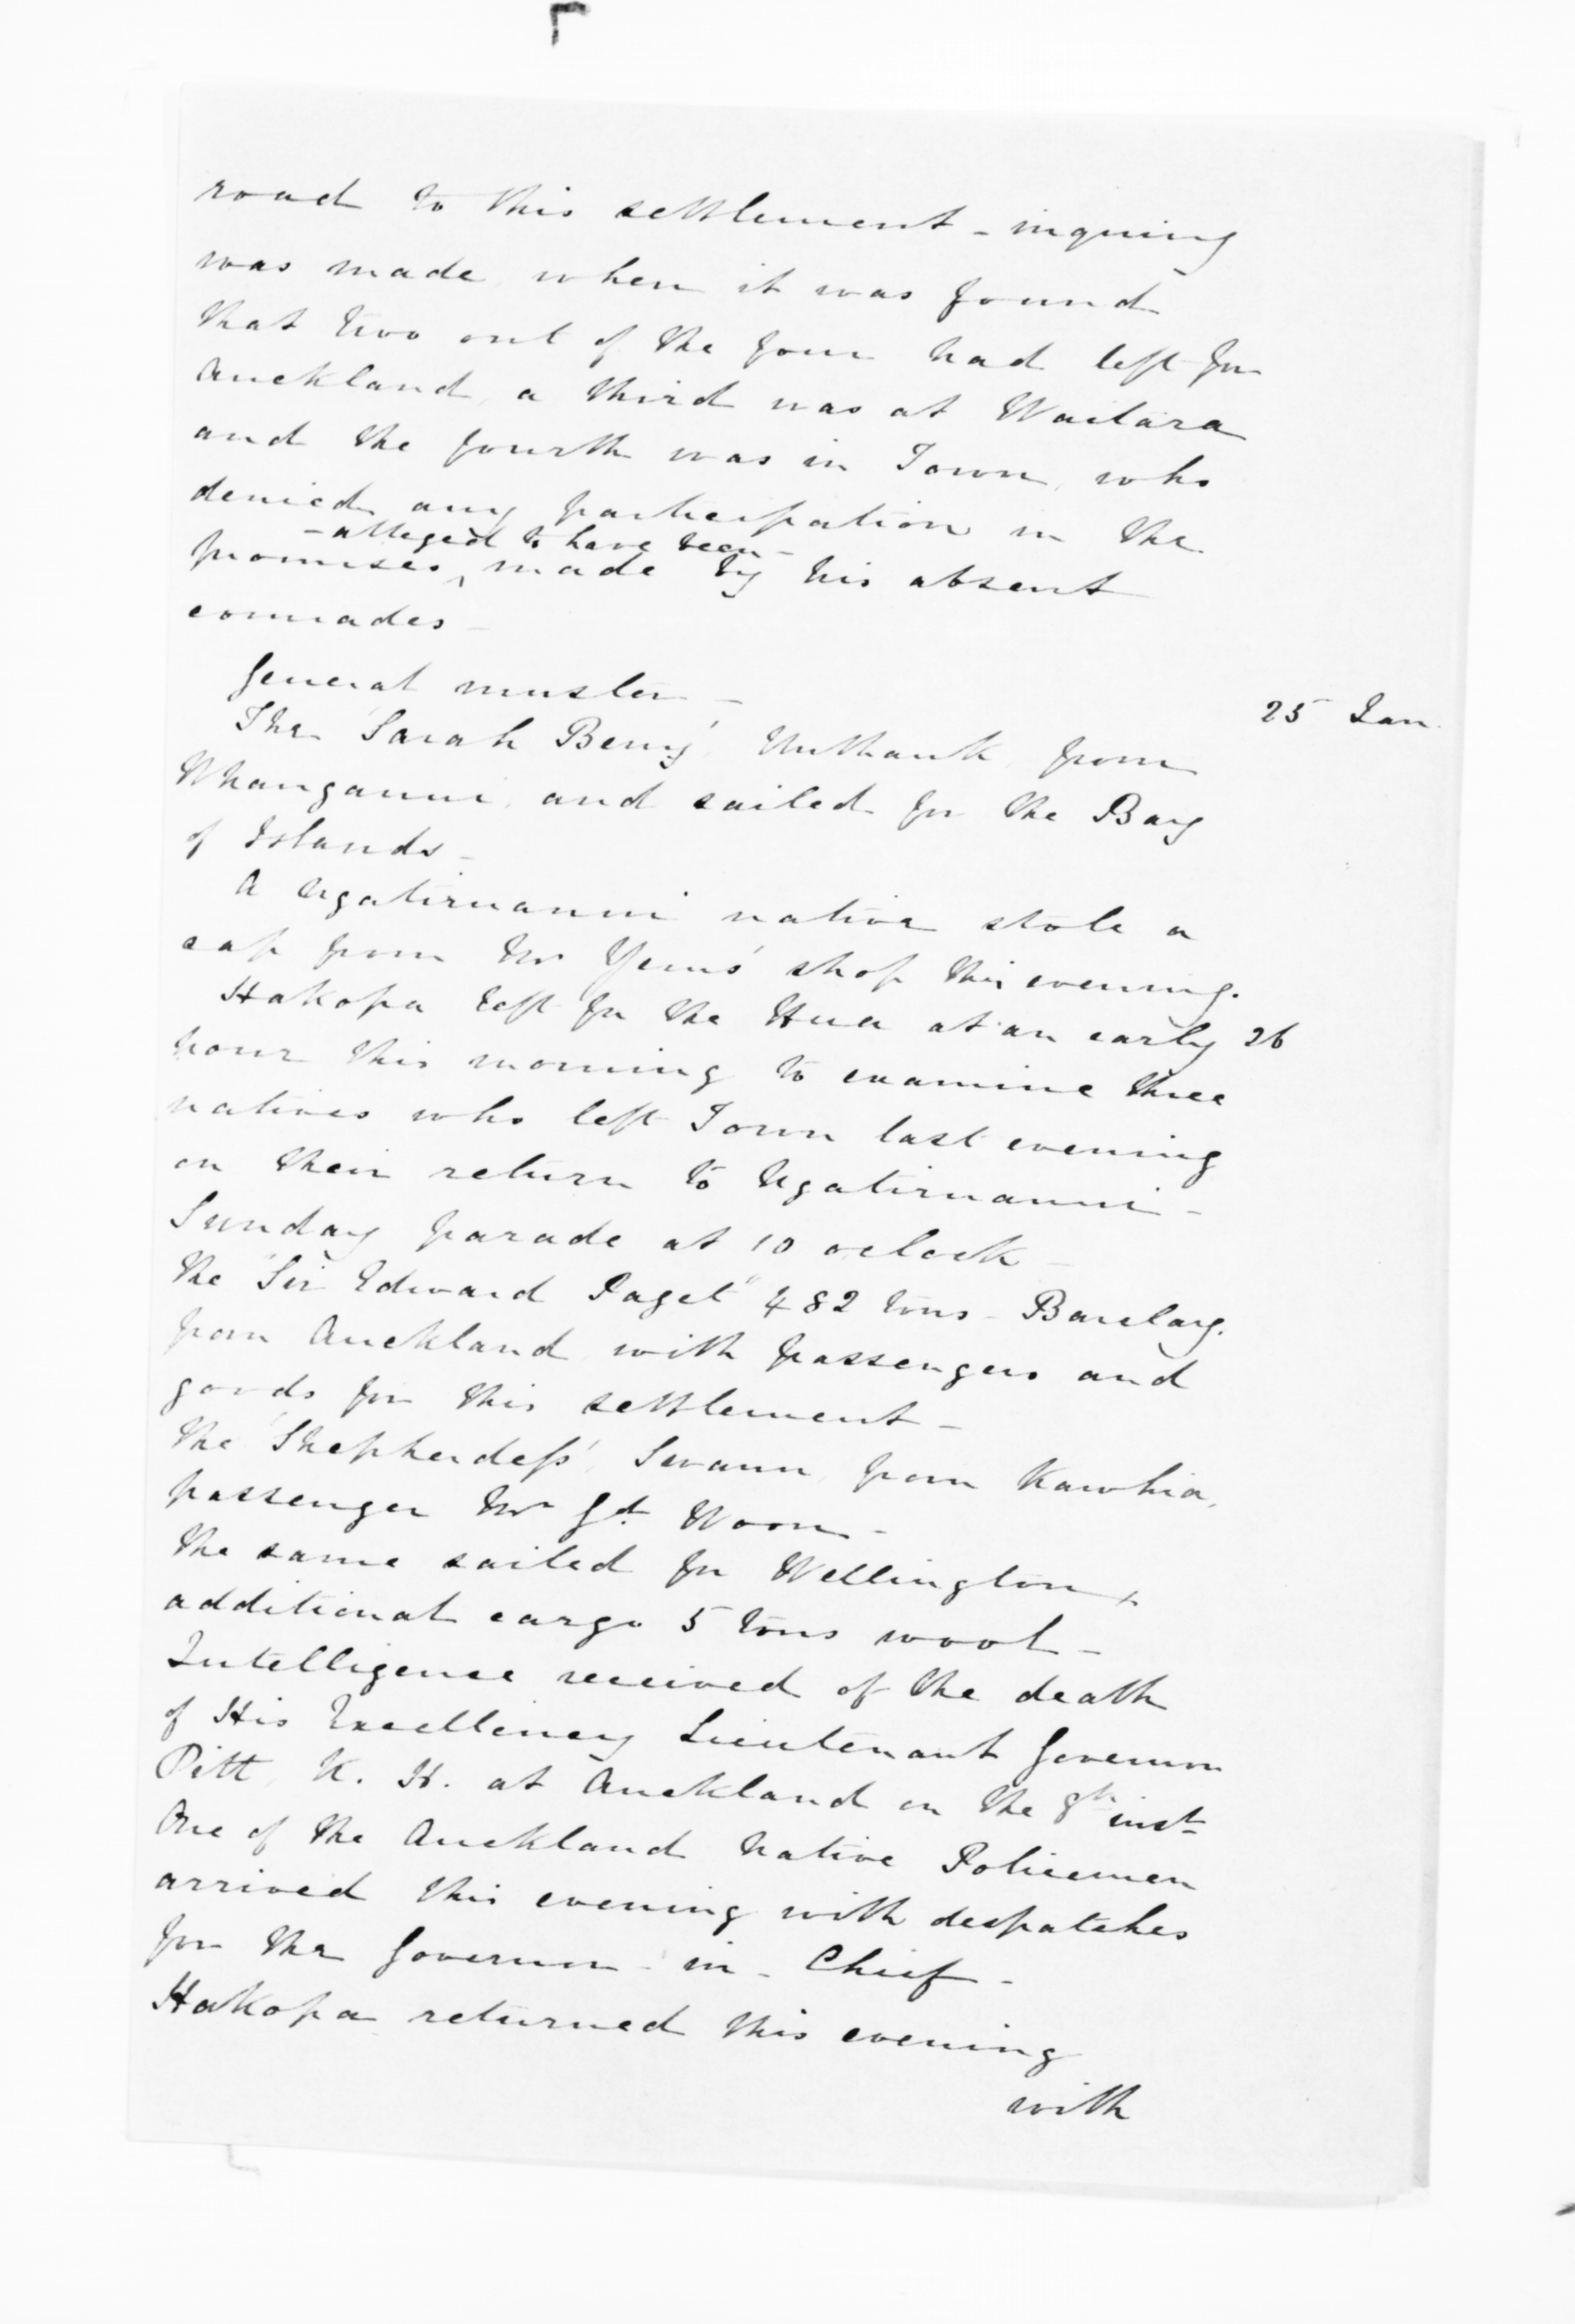 road to this settlement - inquiry
was made, when it was found
that two out of the four had left for
Auckland, a third was at Waitara
and the fourth was in Town, who
denied any participation in the
- alleged to have been -
promises, made by his absent
comrades -
General muster -
25 Jan.
The 'Sarah Berry' Unthank from
Whanganui, and sailed for the Bay
of Islands -
A Ngatiruanui native stole a
cap from Mr shop this evening.
Hakopa left for the Hua at an early 26
hour this morning to examine three
natives who left Town last evening
on their return to Ngatiruanui -
Sunday parade at 10 oclock -
The "Sir Edward Paget" 482 tons - Barclay.
from Auckland with passengers and
goods for this settlement -
The 'Shepherdess', Swann, from Kawhia,
passenger Mr Gd. Woon -
The same sailed for Wellington,
additional cargo 5 tons wool -
Intelligence received of the death
of His Excellency Lieutenant Governor
Pitt, K. H. at Auckland on the 8th inst
One of the Auckland Native Policemen
arrived this evening with despatches
for the Governor - in - Chief -
Hakopa returned this evening
with